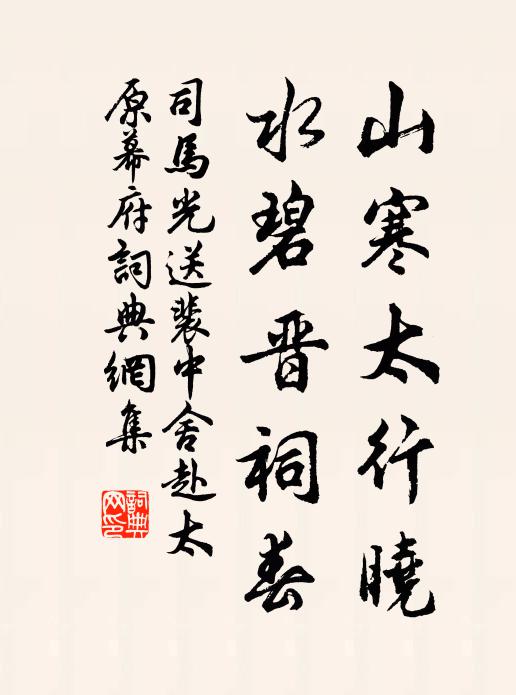 山寒太行曉
水碧晋祠春
司馬光送裴中舍赴太
原幕府詞典網集
詞典
网印